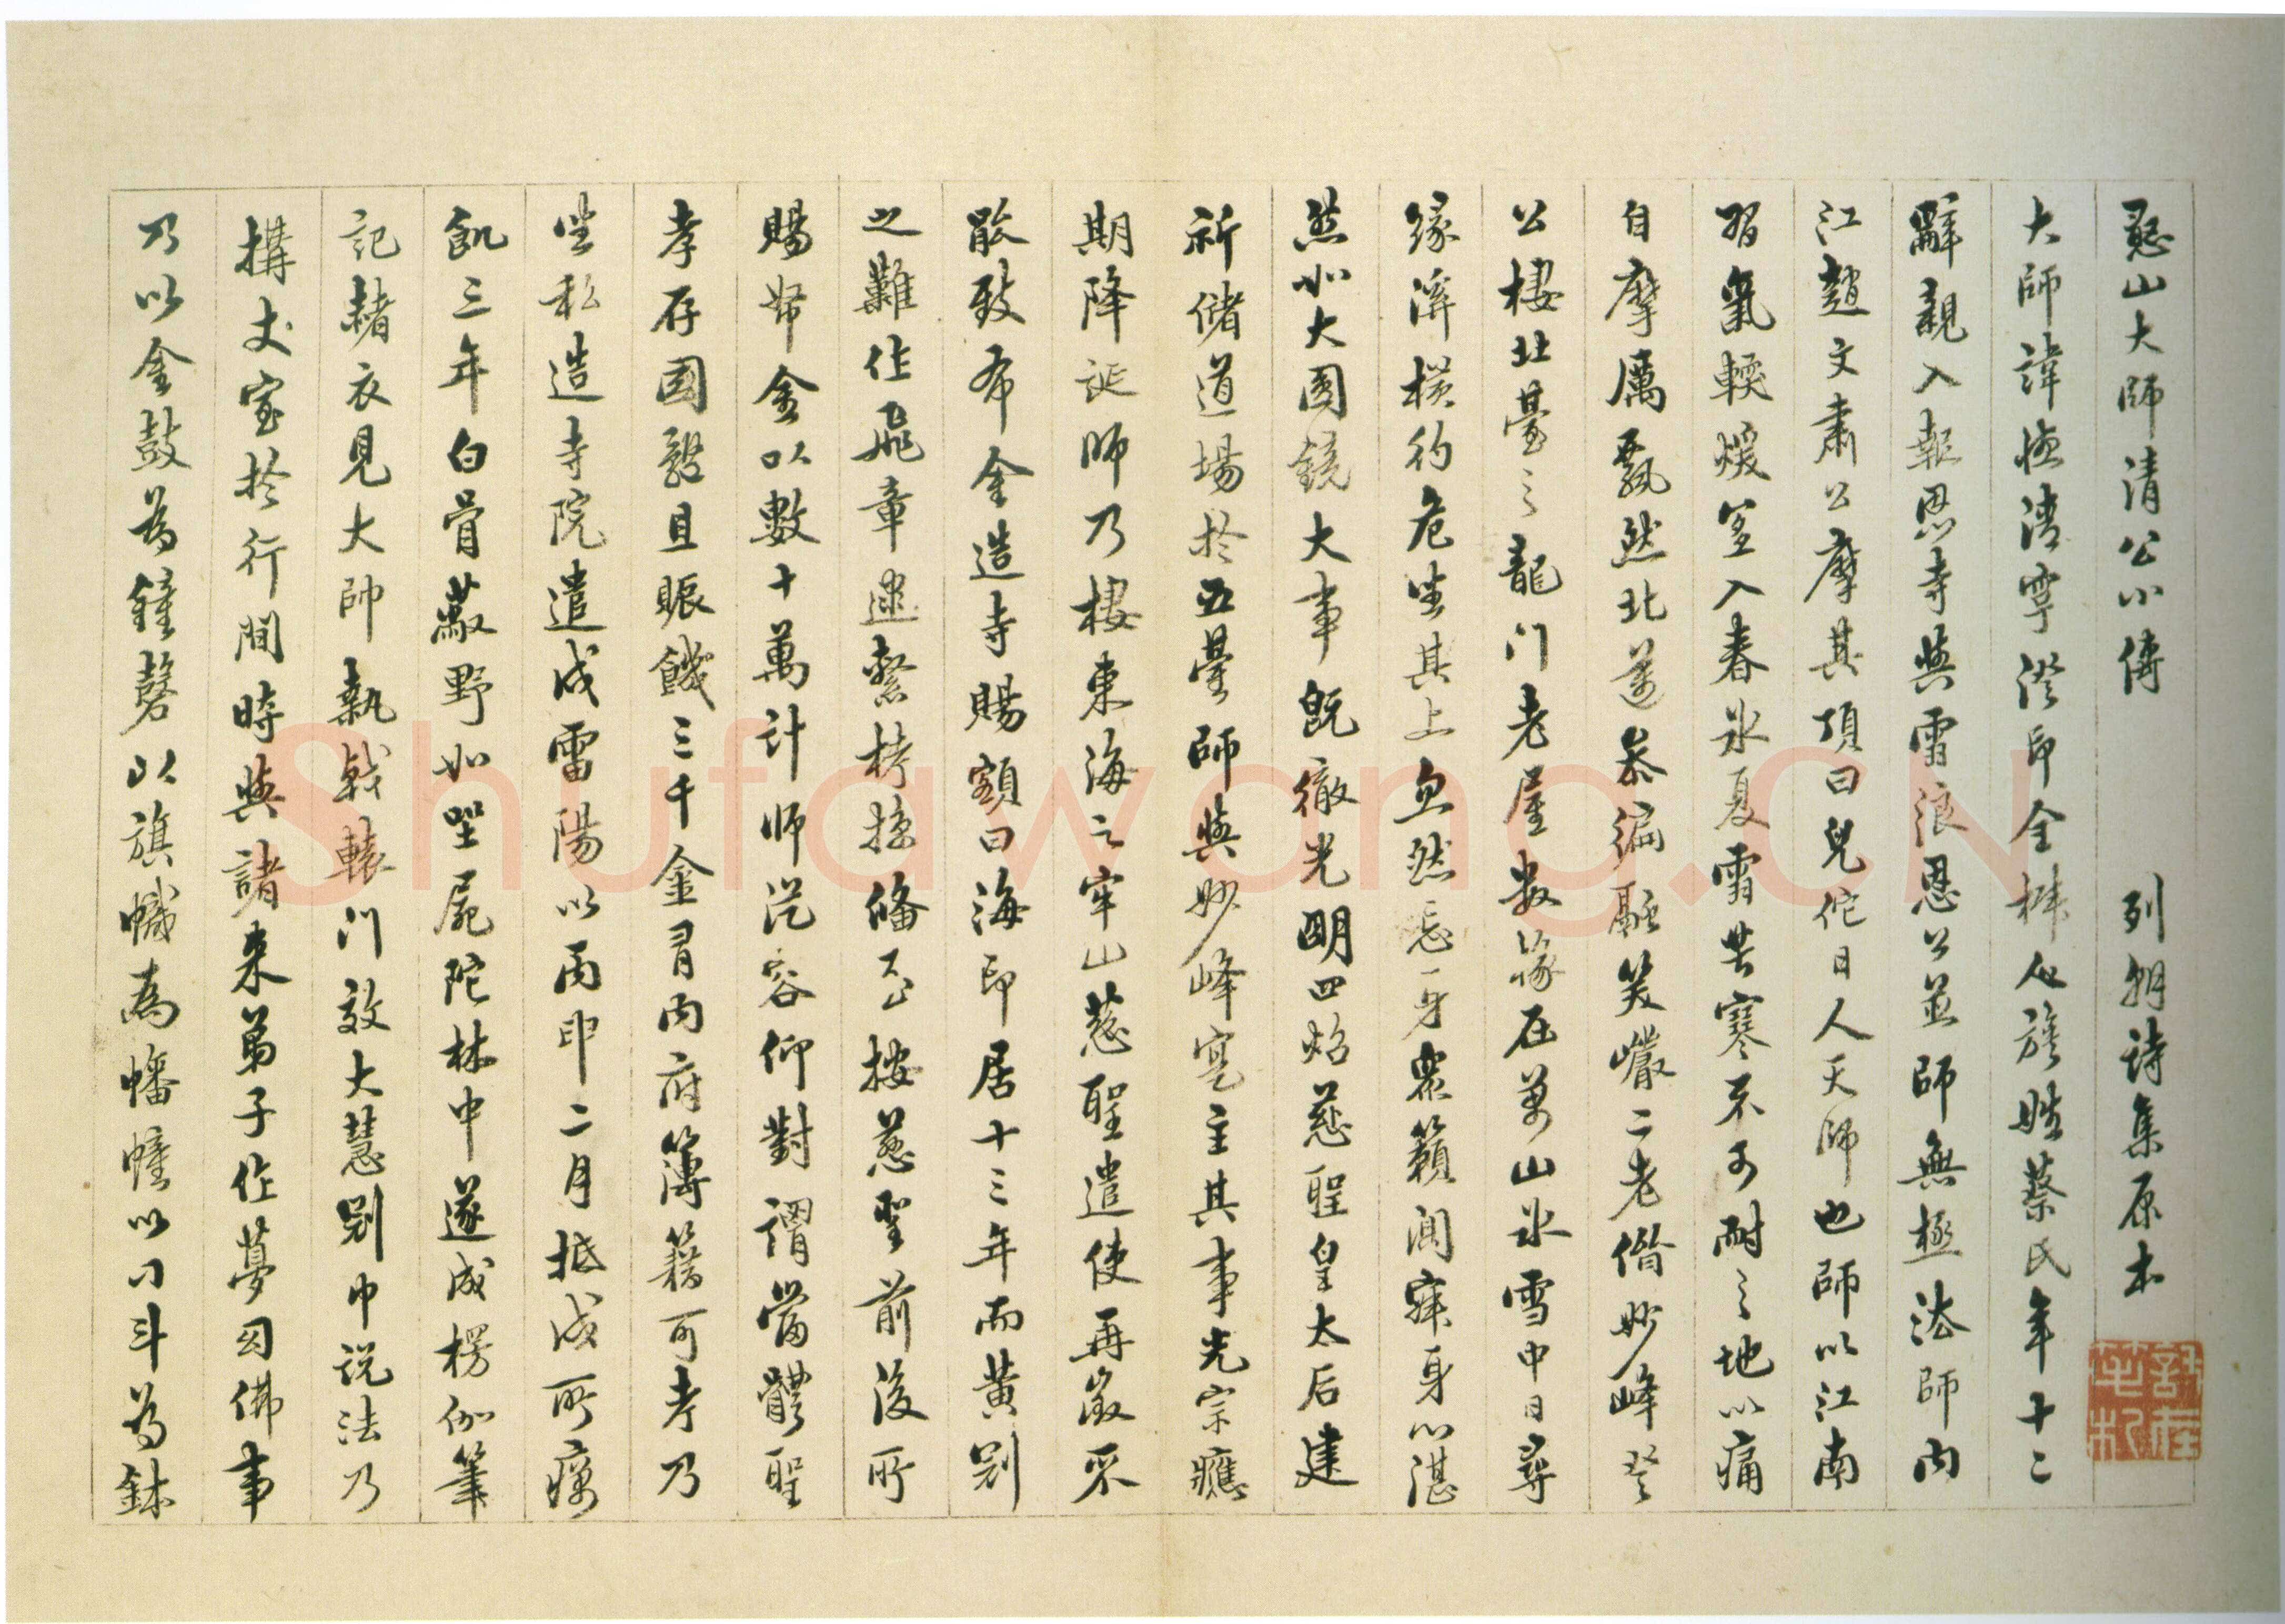 憨山大師清公小傳 列朝詩集原本
大師諱德清字澄印全椒人族姓蔡氏年十二
辭親入報恩寺與雪浪恩公並師無極法師內
江趙文肅公摩其頂曰兒佗日人天師也師以江南
習氣輭煖宜入春冰夏雪苦寒不可耐之地以痛
自摩厲飄然北邁參徧融笑巖二老偕妙峰登
公棲北臺之龍门老屋數椽在萬山冰雪中日尋
緣溪橫彴危坐其上忽然忘身眾籟闃寂身心湛
然如大圓鏡大事既徹光明四炤慈聖皇太后建
祈儲道場於五臺師與妙峰寔主其事光宗應
期降誕師乃棲東海之牢山慈聖遣使再徵不
能致布金造寺賜額曰海印居十三年而黃冠
之難作飛章逮繫拷掠備至按慈聖前後所
賜帑金以數十萬計师從容仰對謂當體聖
孝存國體且賑饑三千金有內府簿籍可考乃
坐私造寺院遣戍雷陽以丙申二月抵戍所癘
飢三年白骨蔽野如坐屍陀林中遂成楞伽筆
記赭衣見大帥執戟轅门效大慧冠巾説法乃
搆丈室於行間時與諸來弟子作夢幻佛事
乃以金鼓为鐘磬以旗幟為幡幢以刁斗为鉢
Shufawang.CN